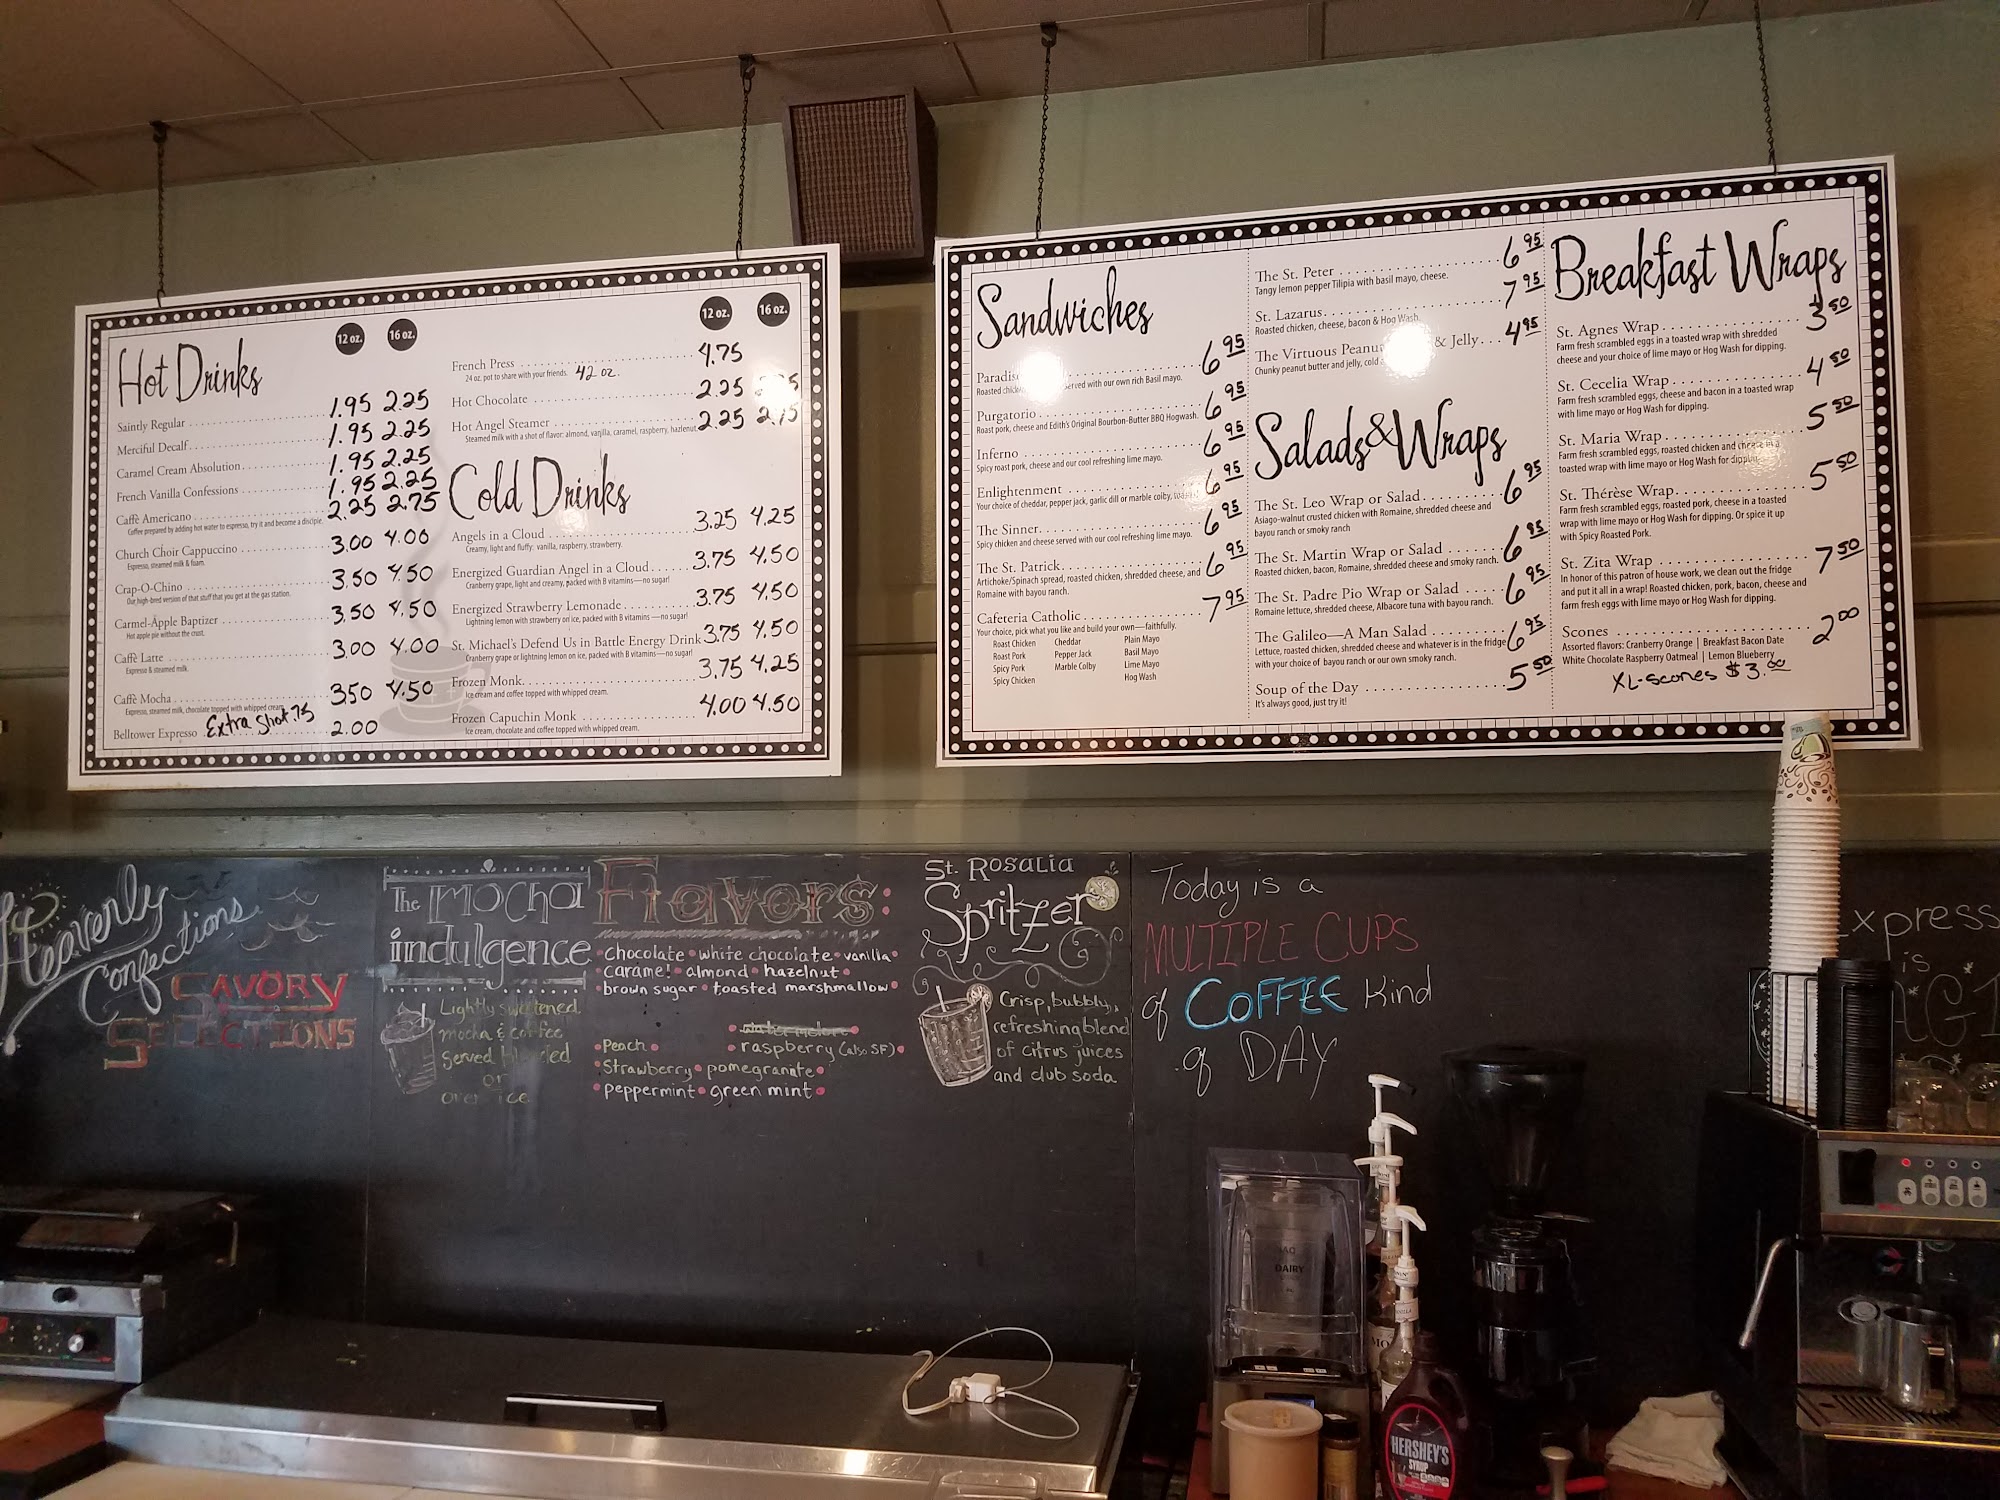 Hot Drinks
12 oz. 16 oz.
Saintly Regular 1.95 2.25
Merciful Decalf 1.95 2.25
Caramel Cream Absolution 1.95 2.25
French Vanilla Confessions 1.95 2.25
Caffè Americano 2.25 2.75
Coffee prepared by adding hot water to espresso, try it and become a disciple.
Church Choir Cappuccino 3.00 4.00
Espresso, steamed milk & foam.
Crap-O-Chino 3.50 4.50
Our high-bred version of that stuff that you get at the gas station.
Carmel-Apple Baptizer 3.50 4.50
Hot apple pie without the crust.
Caffè Latte 3.00 4.00
Espresso & steamed milk.
Caffè Mocha 3.50 4.50
Espresso, steamed milk, chocolate topped with whipped cream
Extra Shot .75
Belltower Espresso 2.00
12 oz. 16 oz.
French Press 4.75
24 oz. pot to share with your friends. 42 oz.
Hot Chocolate 2.25
Hot Angel Steamer 2.25 2.75
Steamed milk with a shot of flavor: almond, vanilla, caramel, raspberry, hazlenut
Cold Drinks
Angels in a Cloud 3.25 4.25
Creamy, light and fluffy: vanilla, raspberry, strawberry.
Energized Guardian Angel in a Cloud 3.75 4.50
Cranberry grape, light and creamy, packed with B vitamins—no sugar!
Energized Strawberry Lemonade 3.75 4.50
Lightning lemon with strawberry on ice, packed with B vitamins—no sugar!
St. Michael's Defend Us in Battle Energy Drink 3.75 4.50
Cranberry grape or lightning lemon on ice, packed with B vitamins—no sugar!
Frozen Monk 3.75 4.25
Ice cream and coffee topped with whipped cream.
Frozen Capuchin Monk 4.00 4.50
Ice cream, chocolate and coffee topped with whipped cream.
Sandwiches
6.95
served with our own rich Basil mayo.
Purgatorio 6.95
Roast pork, cheese and Edith's Original Bourbon-Butter BBQ Hogwash.
Inferno 6.95
Spicy roast pork, cheese and our cool refreshing lime mayo.
Enlightenment 6.95
Your choice of cheddar, pepper jack, garlic dill or marble colby,
The Sinner 6.95
Spicy chicken and cheese served with our cool refreshing lime mayo.
The St. Patrick 6.95
Artichoke/Spinach spread, roasted chicken, shredded cheese, and
Romaine with bayou ranch.
Cafeteria Catholic 7.95
Your choice, pick what you like and build your own—faithfully.
Roast Chicken Cheddar Plain Mayo
Roast Pork Pepper Jack Basil Mayo
Spicy Pork Marble Colby Lime Mayo
Spicy Chicken Hog Wash
The St. Peter 6.95
Tangy lemon pepper Tilipia with basil mayo, cheese.
St. Lazarus 7.95
Roasted chicken, cheese, bacon & Hog Wash.
The Virtuous Peanut & Jelly 4.95
Chunky peanut butter and jelly, cold
Salads & Wraps
The St. Leo Wrap or Salad 6.95
Asiago-walnut crusted chicken with Romaine, shredded cheese and
bayou ranch or smoky ranch
The St. Martin Wrap or Salad 6.95
Roasted chicken, bacon, Romaine, shredded cheese and smoky ranch.
The St. Padre Pio Wrap or Salad 6.95
Romaine lettuce, shredded cheese, Albacore tuna with bayou ranch.
The Galileo—A Man Salad 6.95
Lettuce, roasted chicken, shredded cheese and whatever is in the fridge
with your choice of bayou ranch or our own smoky ranch.
Soup of the Day 5.50
It's always good, just try it!
Breakfast Wraps
St. Agnes Wrap 3.50
Farm fresh scrambled eggs in a toasted wrap with shredded
cheese and your choice of lime mayo or Hog Wash for dipping.
St. Cecelia Wrap 4.50
Farm fresh scrambled eggs, cheese and bacon in a toasted wrap
with lime mayo or Hog Wash for dipping.
St. Maria Wrap 5.50
Farm fresh scrambled eggs, roasted chicken and cheese in a
toasted wrap with lime mayo or Hog Wash for dipping.
St. Thérèse Wrap 5.50
Farm fresh scrambled eggs, roasted pork, cheese in a toasted
wrap with lime mayo or Hog Wash for dipping. Or spice it up
with Spicy Roasted Pork.
St. Zita Wrap 7.50
In honor of this patron of house work, we clean out the fridge
and put it all in a wrap! Roasted chicken, pork, bacon, cheese and
farm fresh eggs with lime mayo or Hog Wash for dipping.
Scones 2.00
Assorted flavors: Cranberry Orange | Breakfast Bacon Date
White Chocolate Raspberry Oatmeal | Lemon Blueberry
XL-scones $3.00
Heavenly
Confections
Savory
Selections
The Mocha
indulgence
Lightly sweetened
mocha & coffee
Served blended
or
over ice
Flavors:
chocolate • white chocolate • vanilla •
caramel • almond • hazelnut •
brown sugar • toasted marshmallow •
• Peach • • raspberry (also SF) •
• Strawberry • pomegranate •
• peppermint • green mint •
St. Rosalia
Spritzer
Crisp, bubbly,
refreshing blend
of citrus juices
and club soda
Today is a
MULTIPLE CUPS
of COFFEE Kind
of DAY
xpress
is
DAIRY
HERSHEY'S
SYRUP